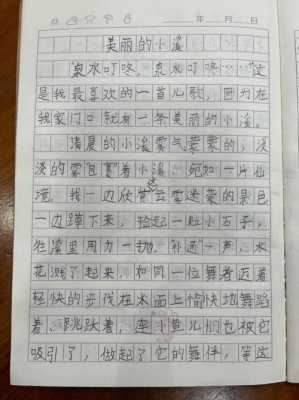 年 月 日
美丽的小溪
“泉水叮咚，泉水叮咚……”这
是我最喜欢的一首儿歌，因为在
我家门口就有一条美丽的小溪。
清晨的小溪雾气蒙蒙的，淡
淡的雾笼着小溪，宛如一片仙
境。我一边欣赏这云雾迷蒙的景色
一边蹲下来，捡起一粒小石子，
往溪里用力一抛，“扑通”一声，水
花溅了起来，如同一位舞者迈着
轻快的步伐在水面上愉快地舞蹈
着、跳跃着，连小鱼儿们也被它
吸引了，做起了它的舞伴，等这